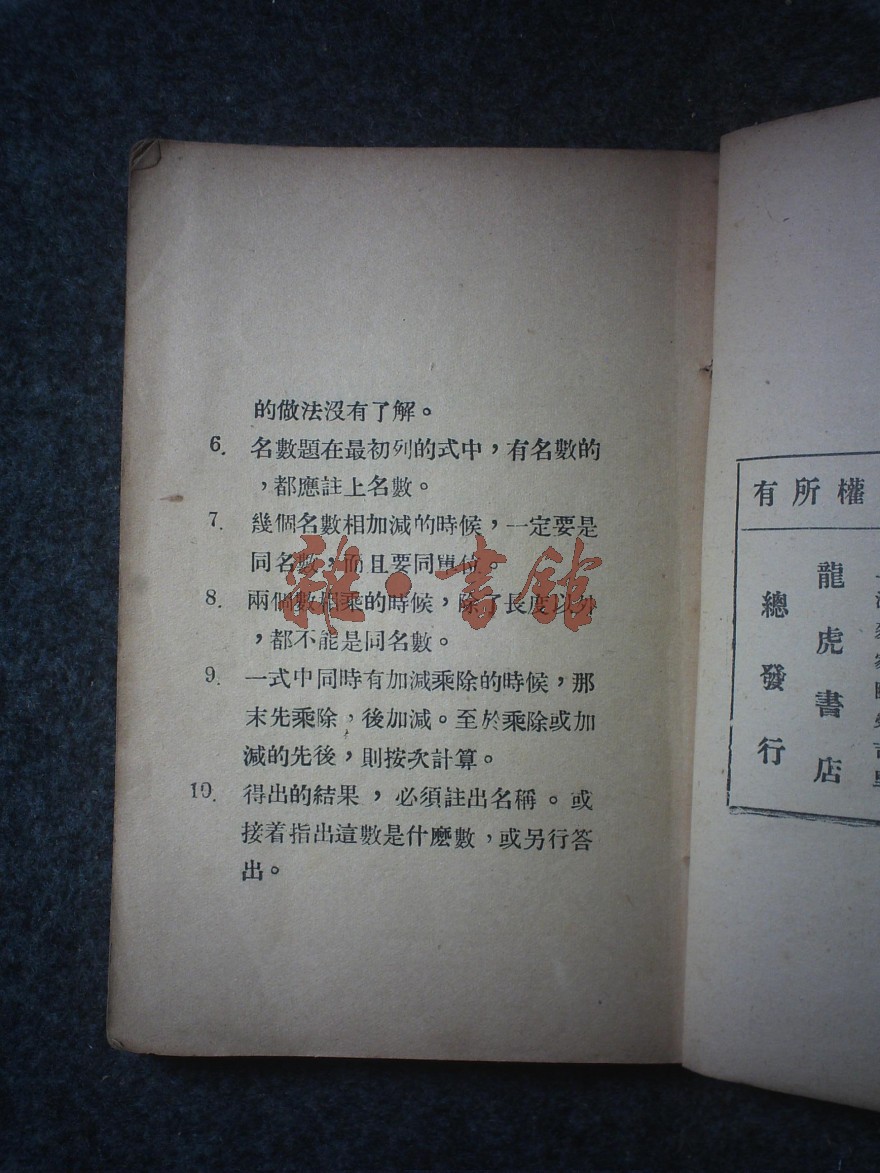 的做法沒有了解。
6. 名數題在最初列的式中，有名數的
，都應註上名數。
7. 幾個名數相加減的時候，一定要是
同名數，而且要同單位。
8. 兩個數相乘的時候，除了長度以外
，都不能是同名數。
9. 一式中同時有加減乘除的時候，那
末先乘除，後加減。至於乘除或加
減的先後，則按次計算。
10. 得出的結果，必須註出名稱。或
接着指出這數是什麽數，或另行答
出。
雜·書館
有所權
龍虎書店
總發行